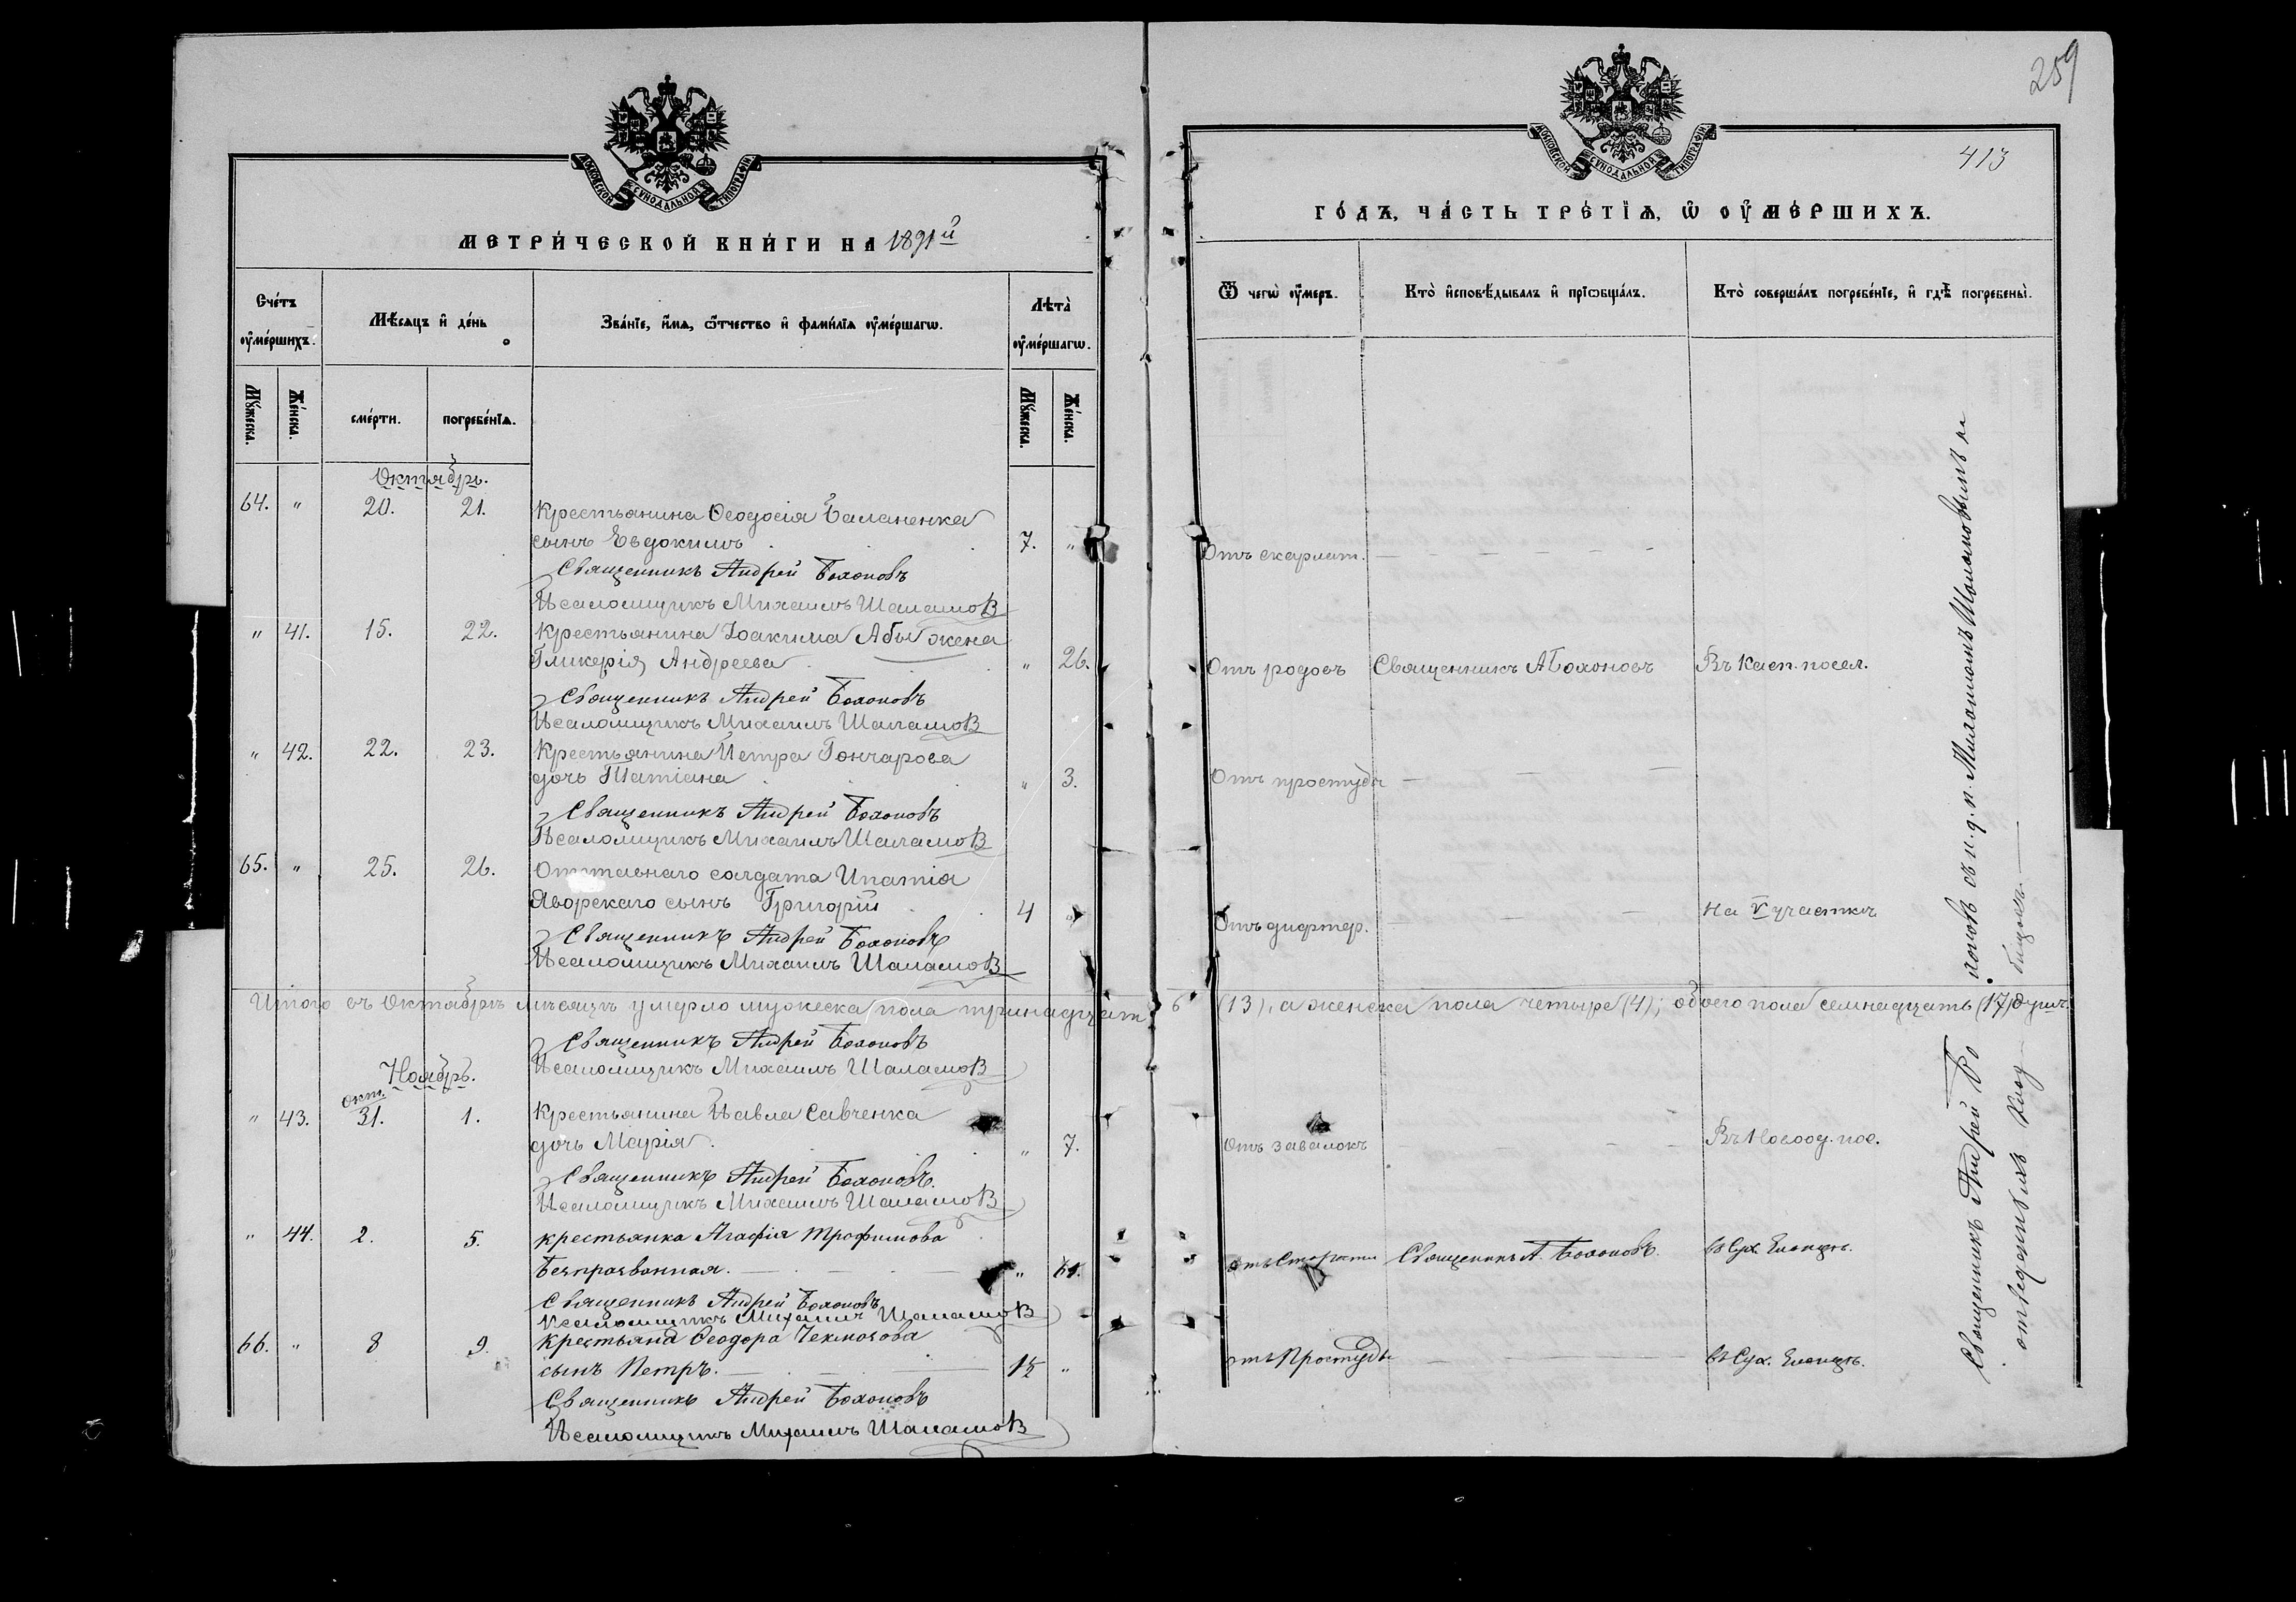 МОСКОВСКОЙ СѴНОДАЛЬНОЙ ТИПОГРАФІИ
МЕТРИ́ЧЕСКОЙ КНИ́ГИ НА 1891й
Сче́тъ ᲂу҆ме́ршихъ.
Мѣ́сяцъ и҆ де́нь
Зва́нїе, и҆́мя, ѻ҆́тчество и҆ фами́лїя ᲂу҆ме́ршагѡ.
Лѣ́та ᲂу҆ме́ршагѡ.
Мꙋ́жеска.
Же́нска.
сме́рти.
погребе́нїѧ.
Мꙋ́жеска.
Же́нска.
Октябрь.
64. " 20. 21. Крестьянина Ѳеодосія Баланенка
сынъ Евдокимъ 7. "
Священникъ Андрей Бохоновъ
Псаломщикъ Михаилъ Шаламовъ
" 41. 15. 22. Крестьянина Іоакима Абы жена
Гликерія Андреева " 26.
Священникъ Андрей Бохоновъ
Псаломщикъ Михаилъ Шаламовъ
" 42. 22. 23. Крестьянина Петра Гончарова
дочь Татіана " 3.
Священникъ Андрей Бохоновъ
Псаломщикъ Михаилъ Шаламовъ
65. " 25. 26. Отставнаго солдата Ипатія
Яворскаго сынъ Григорій 4 "
Священникъ Андрей Бохоновъ
Псаломщикъ Михаилъ Шаламовъ
Итого въ Октябрѣ мѣсяцѣ умерло мужеска пола тринадцать
Священникъ Андрей Бохоновъ
Псаломщикъ Михаилъ Шаламовъ
Ноябрь.
окт.
" 43. 31. 1. Крестьянина Павла Савченка
дочь Марія " 7.
Священникъ Андрей Бохоновъ.
Псаломщикъ Михаилъ Шаламовъ
" 44. 2. 5. крестьянка Агафія Трофимова
Безпрозванная. "
Священникъ Андрей Бохоновъ
Псаломщикъ Михаилъ Шаламовъ
66. " 8 9. крестьяна Ѳеодора Чехмосова
сынъ Петръ. 1½ "
Священникъ Андрей Бохоновъ
Псаломщикъ Михаилъ Шаламовъ
259
413
МОСКОВСКОЙ СѴНОДАЛЬНОЙ ТИПОГРАФІИ
ГО́ДЪ, ЧА́СТЬ ТРЕ́ТЇѦ, Ѡ҆ ОУ҆МЕ́РШИХЪ.
Ѿ чегѡ̀ ᲂу҆́меръ.
Кто̀ и҆сповѣ́дывалъ и҆ прїѡбща́лъ.
Кто̀ соверша́лъ погребе́нїе, и҆ гдѣ̀ погребены̀.
Отъ скарлат.
Отъ родовъ Священникъ А Бохоновъ Въ Касп. посел.
Отъ простуды
Отъ дифтер. На V участкѣ
(13), а женска пола четыре (4); обоего пола семнадцать (17) душъ.
Отъ завалокъ Въ Новоод. пос.
отъ Старости Священникъ А. Бохоновъ. въ Сух. Еланцѣ.
отъ Простуды въ Сух. Еланцѣ.
Священникъ Андрей Бохоновъ съ и. д. п. Михаиломъ Шаламовымъ на
отведенномъ кладбищѣ.